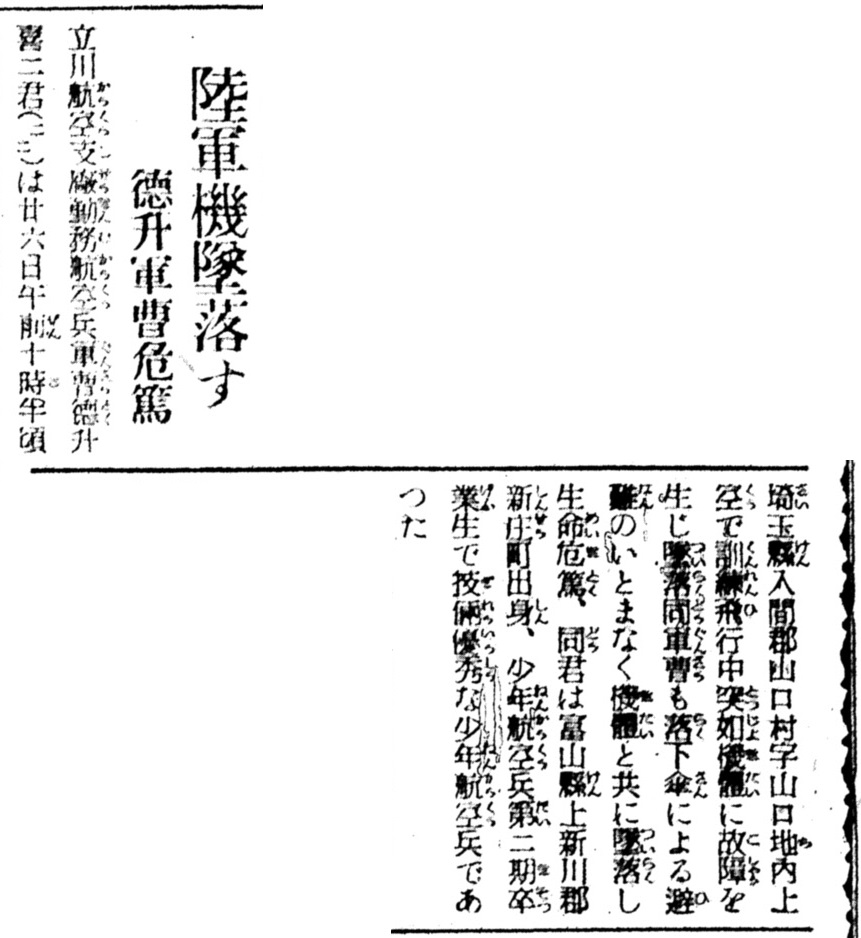 陸軍機墜落す
德升軍曹危篤
立川航空支廠勤務航空兵軍曹德升
喜二君(二三)は廿六日午前十時半頃
埼玉縣入間郡山口村字山口地內上
空で訓練飛行中突如機體に故障を
生じ墜落同軍曹も落下傘による避
難のいとまなく機體と共に墜落し
生命危篤、同君は富山縣上新川郡
新庄町出身、少年航空兵第二期卒
業生で技倆優秀な少年航空兵であ
つた